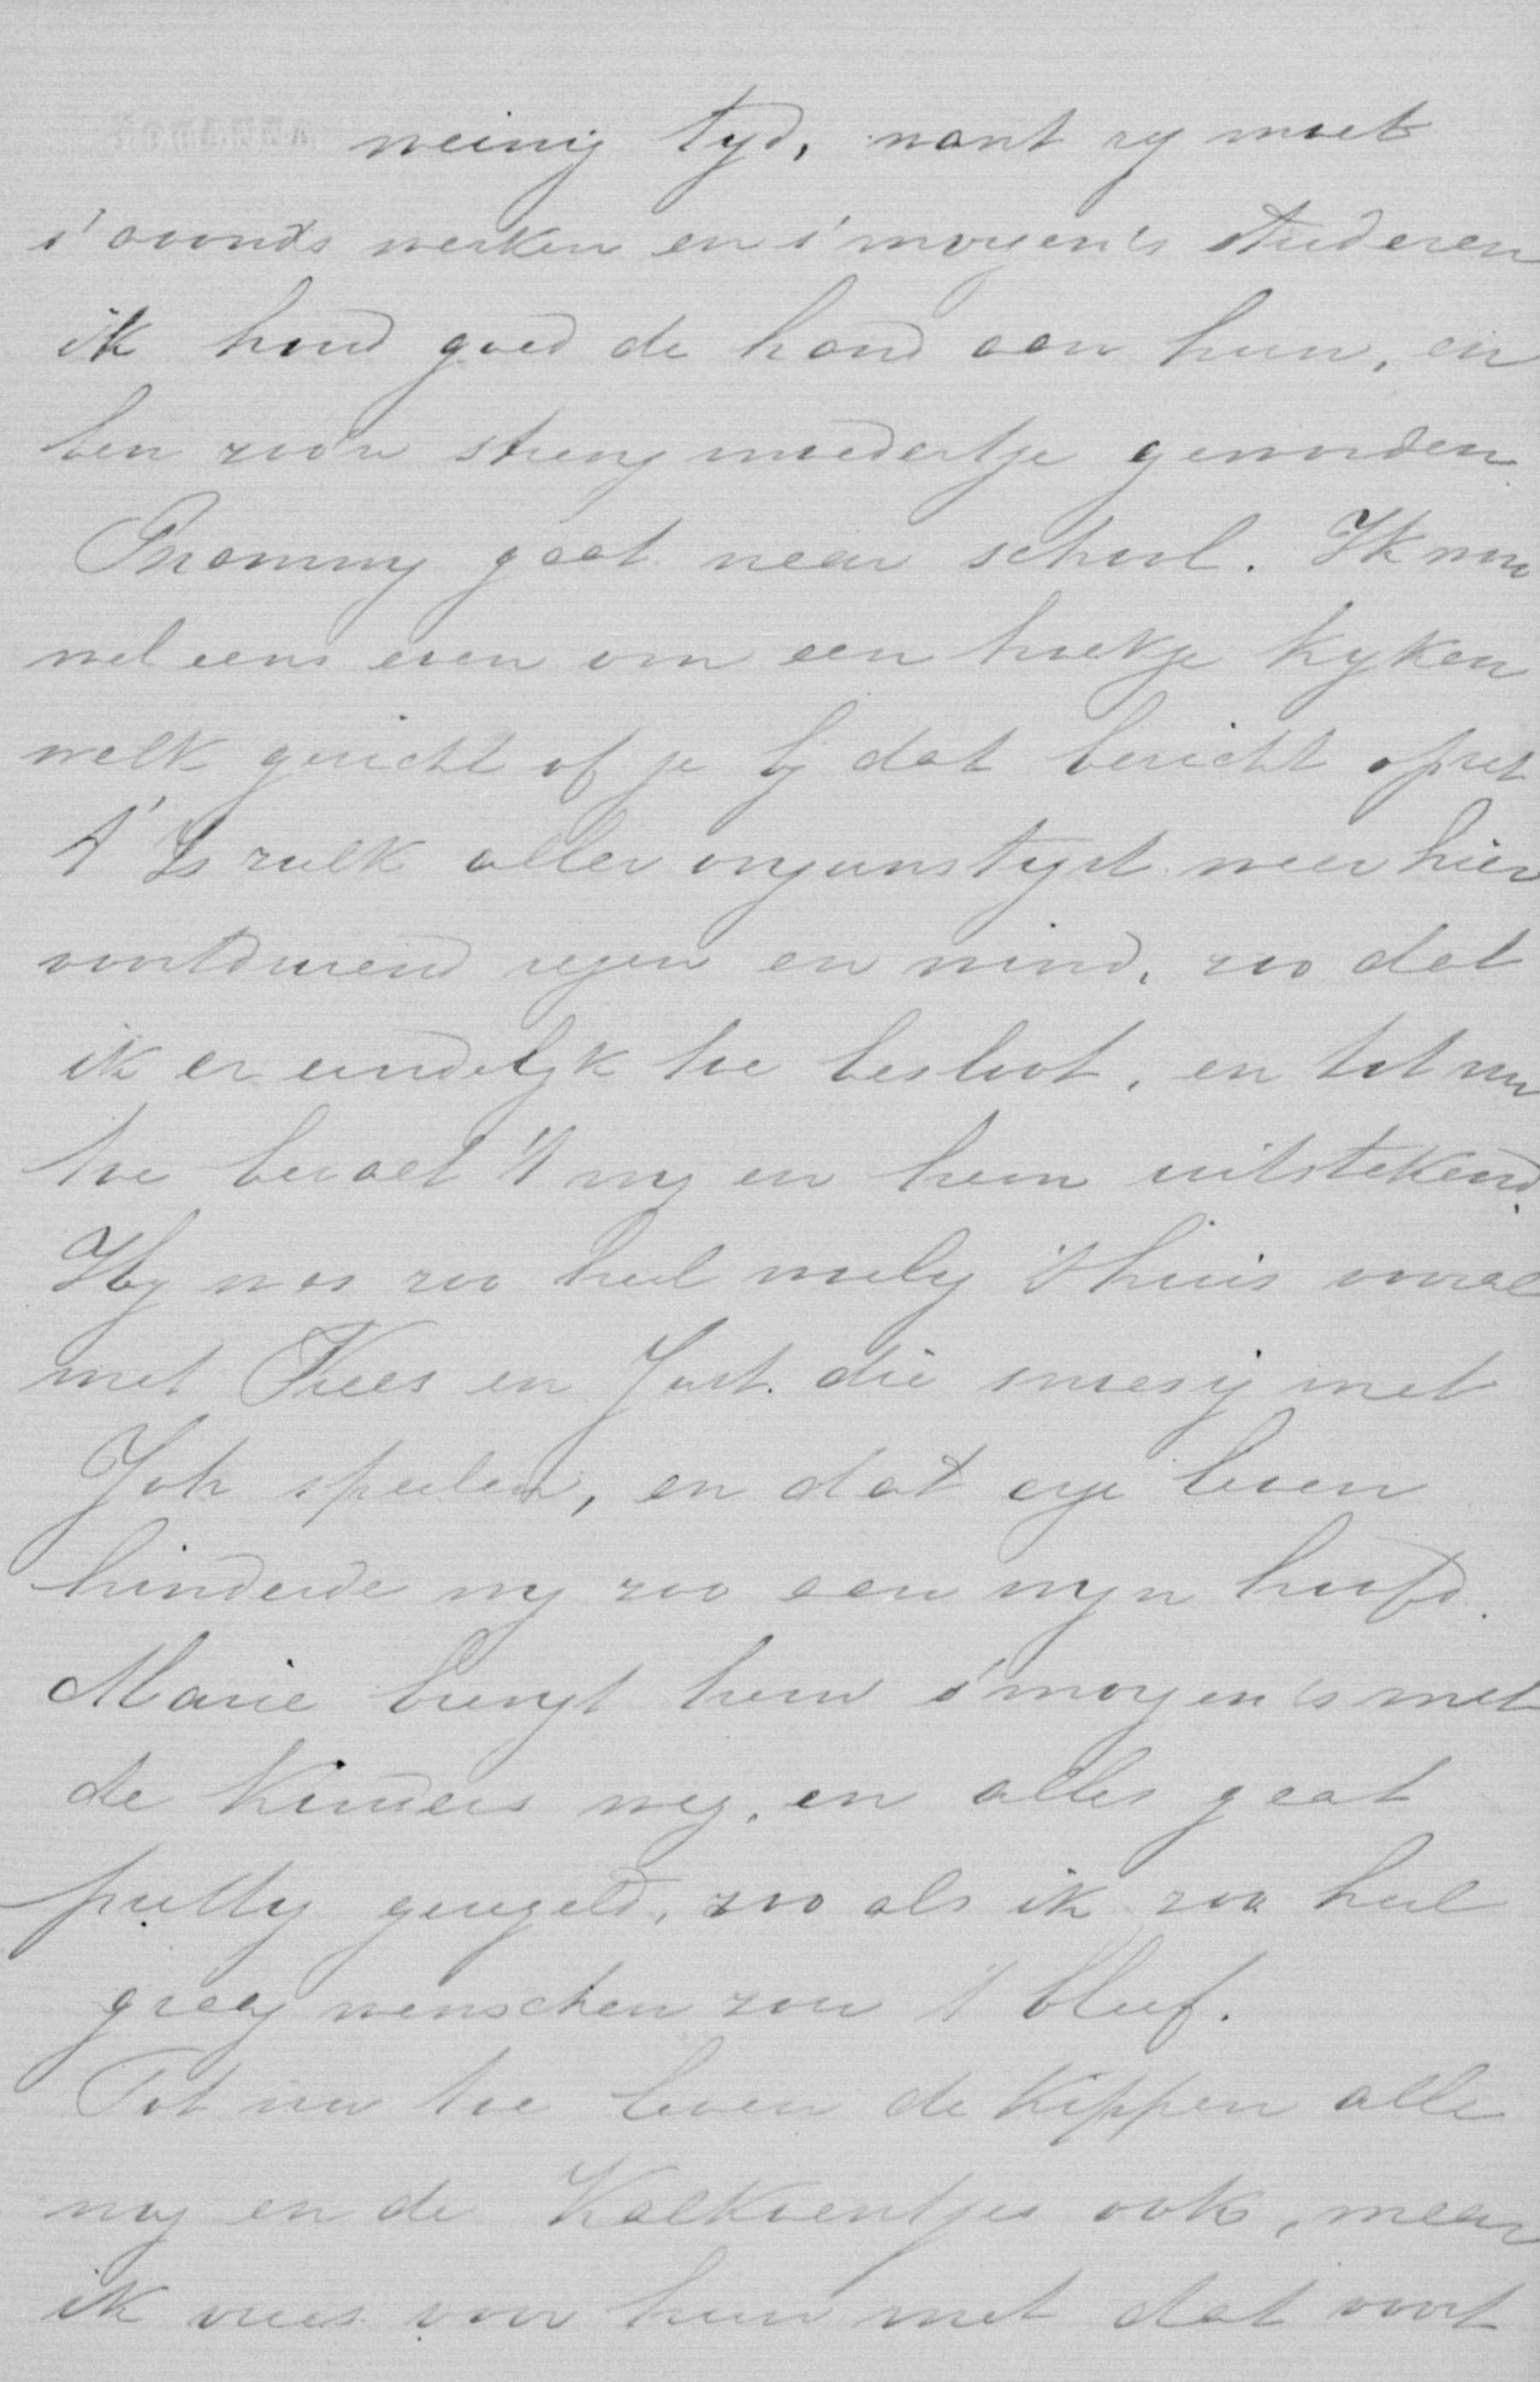 weinig tyd, want zy moet
s'avonds werken en s'morgens studeren
ik houd goed de hand aan hun, en
ben zoo'n streng moedertje geworden
Pranny gaat naar school. Ik wou
wel eens even om een hoekje kyken
welk gezicht of je bij dat bericht opzet
't Is zulk aller ongunstigst weer hier
voortdurend regen en wind, zoo dat
ik er eindelyk toe besloot, en tot nu
toe bevalt 't my en hem uitstekend
Hy was zoo heel woelig t'huis vooral
met Kees en Just. die
Joh speelen, en dat leven
hinderde my zoo aan myn hoofd.
Marie brengt hem s'morgens met
de kinders weg, en alles gaat
prettig geregeld, zoo als ik zoo heel
graag wenschen zou 't bleef.
Tot nu toe leven de kippen alle
nog en de Kalkoentjes ook, maar
ik vrees voor hun met dat voort